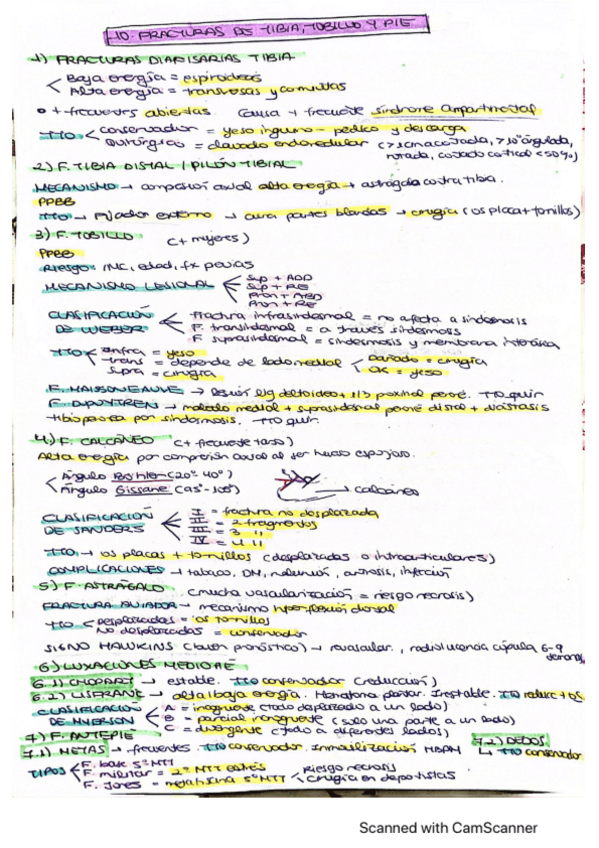 10. FRACTURAS DE TIBIA, TOBILLO Y PIE
1) FRACTURAS DIAFISARIAS TIBIA
Baja energía = espiroideas
Alta energía = transversas y conminutas
+ frecuentes abiertas. Causa + frecuente síndrome compartimental
TTO conservador = yeso inguino-pédico y descarga
Quirúrgico = clavado endomedular (>1cm acortada, >10° angulada, rotada, contacto cortical <50%)
2) F. TIBIA DISTAL / PILÓN TIBIAL
MECANISMO → compresión axial alta energía → astrágalo contra tibia.
PPBB
TTO → Fijador externo → cura partes blandas → cirugía (os placa + tornillos)
3) F. TOBILLO (+ mujeres)
PPBB
Riesgo: IMC, edad, fx previas
MECANISMO LESIONAL
Sup + ADD
Sup + RE
Pron + ABD
Pron + RE
CLASIFICACIÓN DE WEBER
Fractura infrasindesmal = no afecta a sindesmosis
F. transindesmal = a través sindesmosis
F. suprasindesmal = sindesmosis y membrana interósea
TTO
infra = yeso
trans = depende de lado medial
supra = cirugía
Dañado = cirugía
OK = yeso
F. MAISSONEAUVE → lesión lig deltoideo + 1/3 proximal peroné. TTO quir
F. DUPUYTREN → maleolo medial + suprasindesmal peroné distal + diástasis
tibioperonea por sindesmosis. TTO quir.
4) F. CALCÁNEO (+ frecuente tarso)
Alta energía por compresión axial al ser hueso esponjoso.
Ángulo Böhler (20°-40°)
Ángulo Gissane
calcáneo
CLASIFICACIÓN DE SANDERS
I = fractura no desplazada
II = 2 fragmentos
III = 3 "
IV = 4 "
TTO → os placas + tornillos (desplazadas o intraarticulares)
COMPLICACIONES → tabaco, DM, malunión, artrosis, infección
5) F. ASTRÁGALO (mucha vascularización = riesgo necrosis)
FRACTURA AVIADOR → mecanismo hiperflexión dorsal
TTO
Desplazadas = os tornillos
No desplazadas = conservador
SIGNO HAWKINS (buen pronóstico) → revascular., radiolucencia cúpula 6-9 semanas
6) LUXACIONES MEDIOPIÉ
6.1) CHOPART → estable. TTO conservador (reducción)
6.2) LISFRANC → alta/baja energía. Hematoma plantar. Inestable. TTO reducc + os
CLASIFICACIÓN DE MYERSON
A = incongruente (todo desplazado a un lado)
B = parcial incongruente (solo una parte a un lado)
C = divergente (todo a diferentes lados)
7) F. ANTEPIE
7.1) METAS → frecuentes TTO conservador. Inmovilización HBPM
7.2) DEDOS
↳ TTO conservador
TIPOS
F. base 5º MTT
F. militar = 2º MTT estrés
F. Jones = metafisina 5º MTT
Riesgo necrosis
Cirugía en deportistas
Scanned with CamScanner